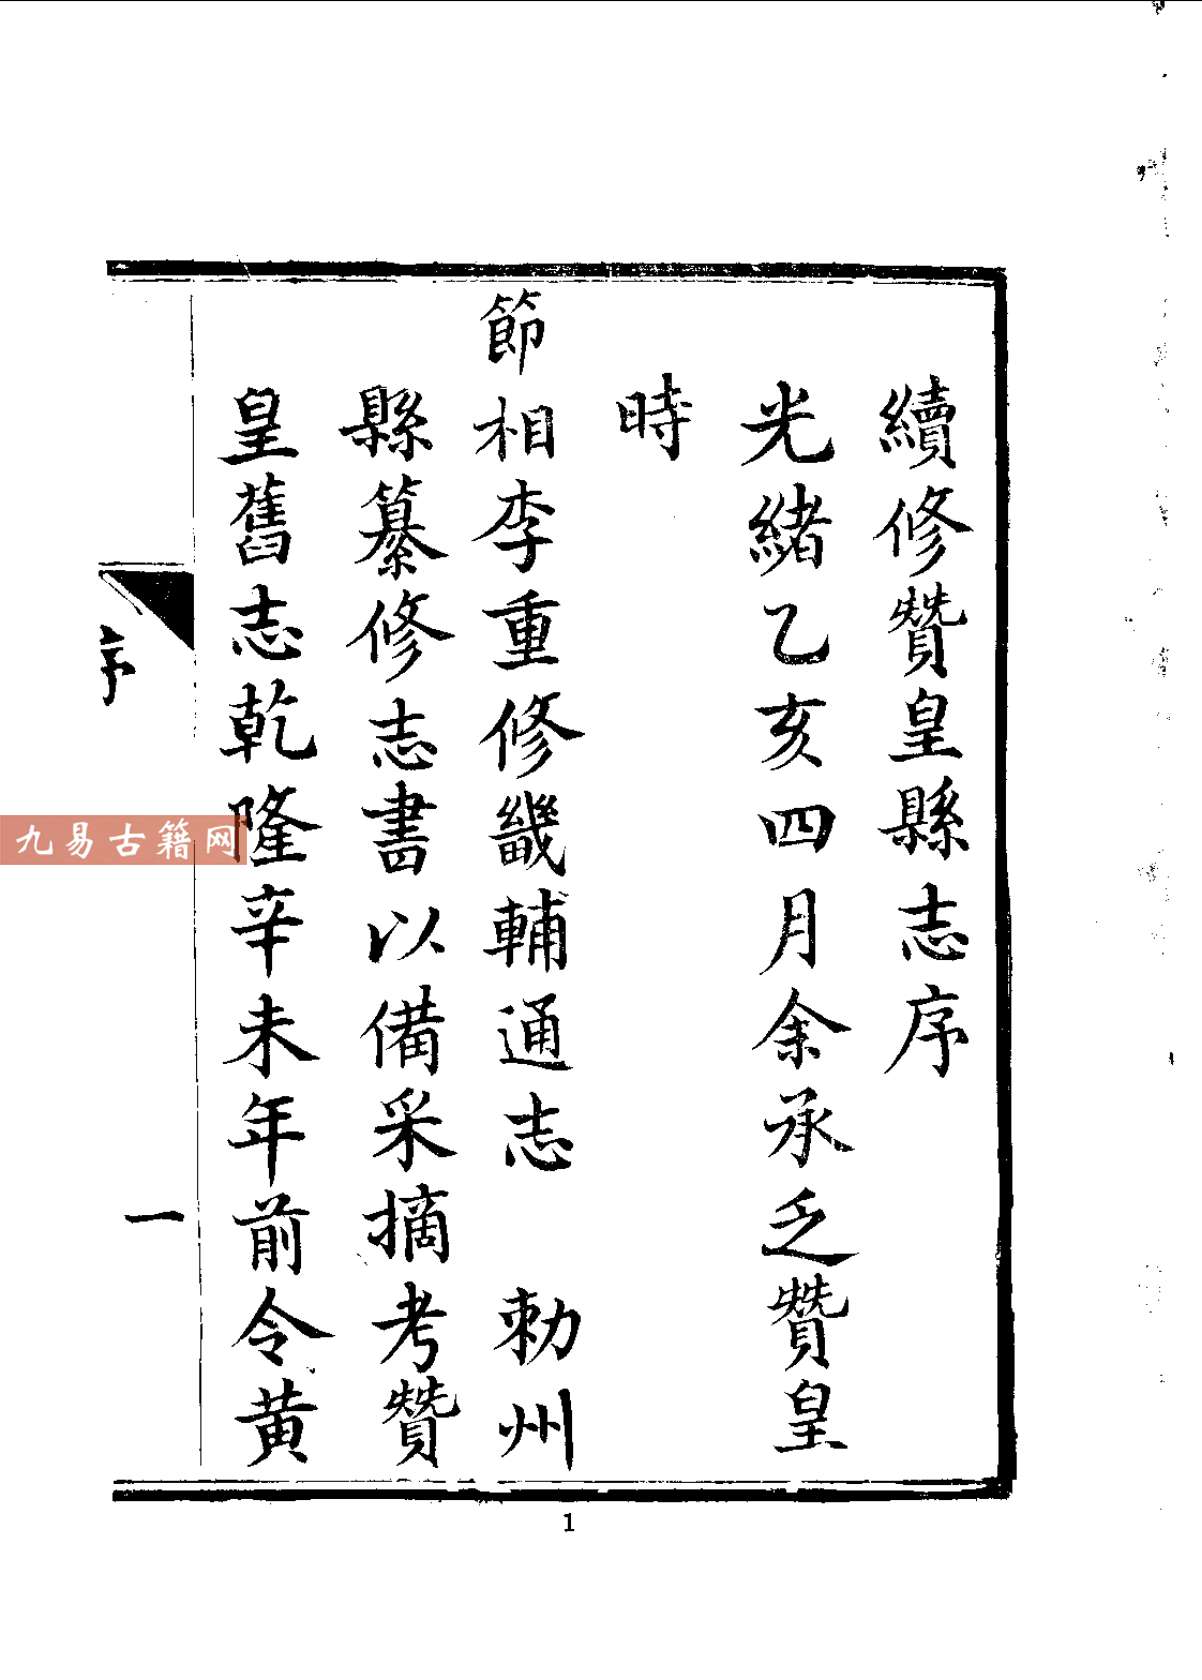 續修贊皇縣志序
光緒乙亥四月余承乏贊皇
時
節相李重修畿輔通志　勅州
縣纂修志書以備采摘考贊
皇舊志乾隆辛未年前令黄
序
一
九易古籍网
1